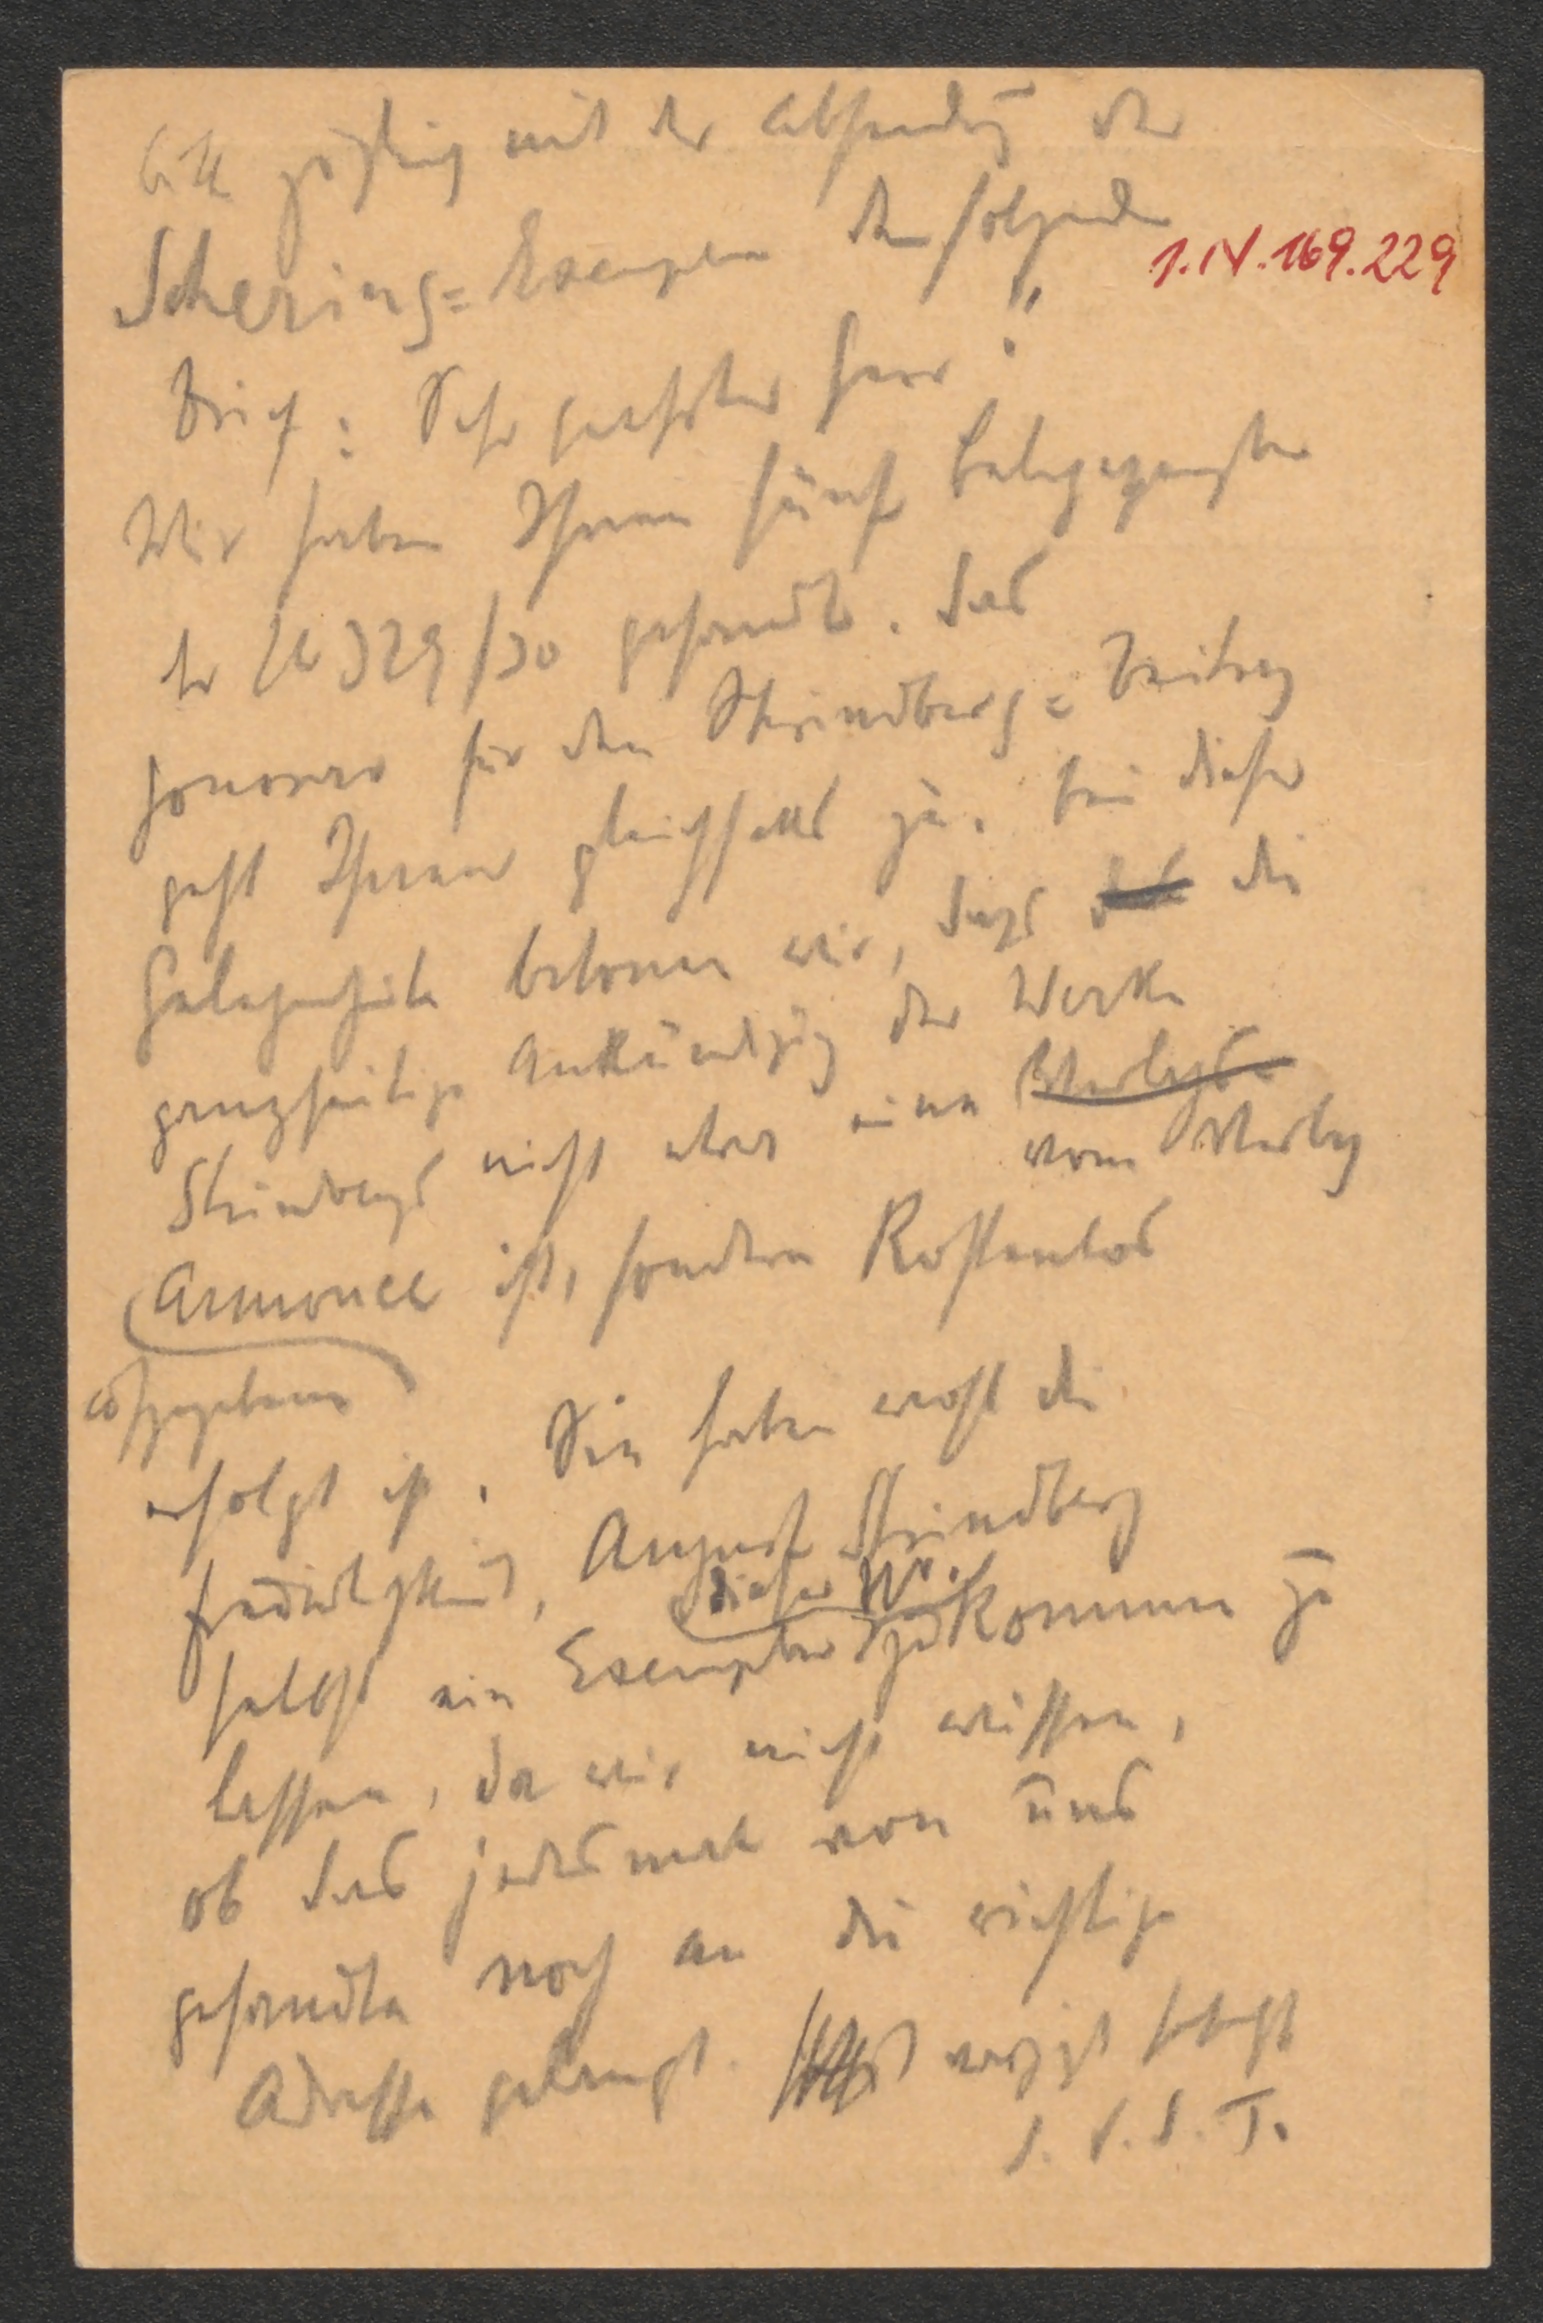 bitte zugleich mit der Absendung der
Schering=Exemplare den folgenden
1.N.169.229
Brief: Sehr geehrter Herr!
Wir haben Ihnen fünf Belegexemplare
der No 329/30 gesandt. Das
Honorar für den Strindberg=Beitrag
geht Ihnen gleichfalls zu. Bei dieser
Gelegenheit betonen wir, dass die
ganzseitige Ankündigung der Werke
Strindbergs nicht etwa eine Verlags
vom Verlag
Annonce ist, sondern kostenlos
aufgegebene
erfolgt ist. Sie haben wohl die
Freundlichkeit, August Strindberg
dieser Nr.
selbst ein Exemplar zukommen zu
lassen, da wir nicht wissen,
ob das jedesmal von uns
gesandte noch an die richtige
Adresse gelangt.